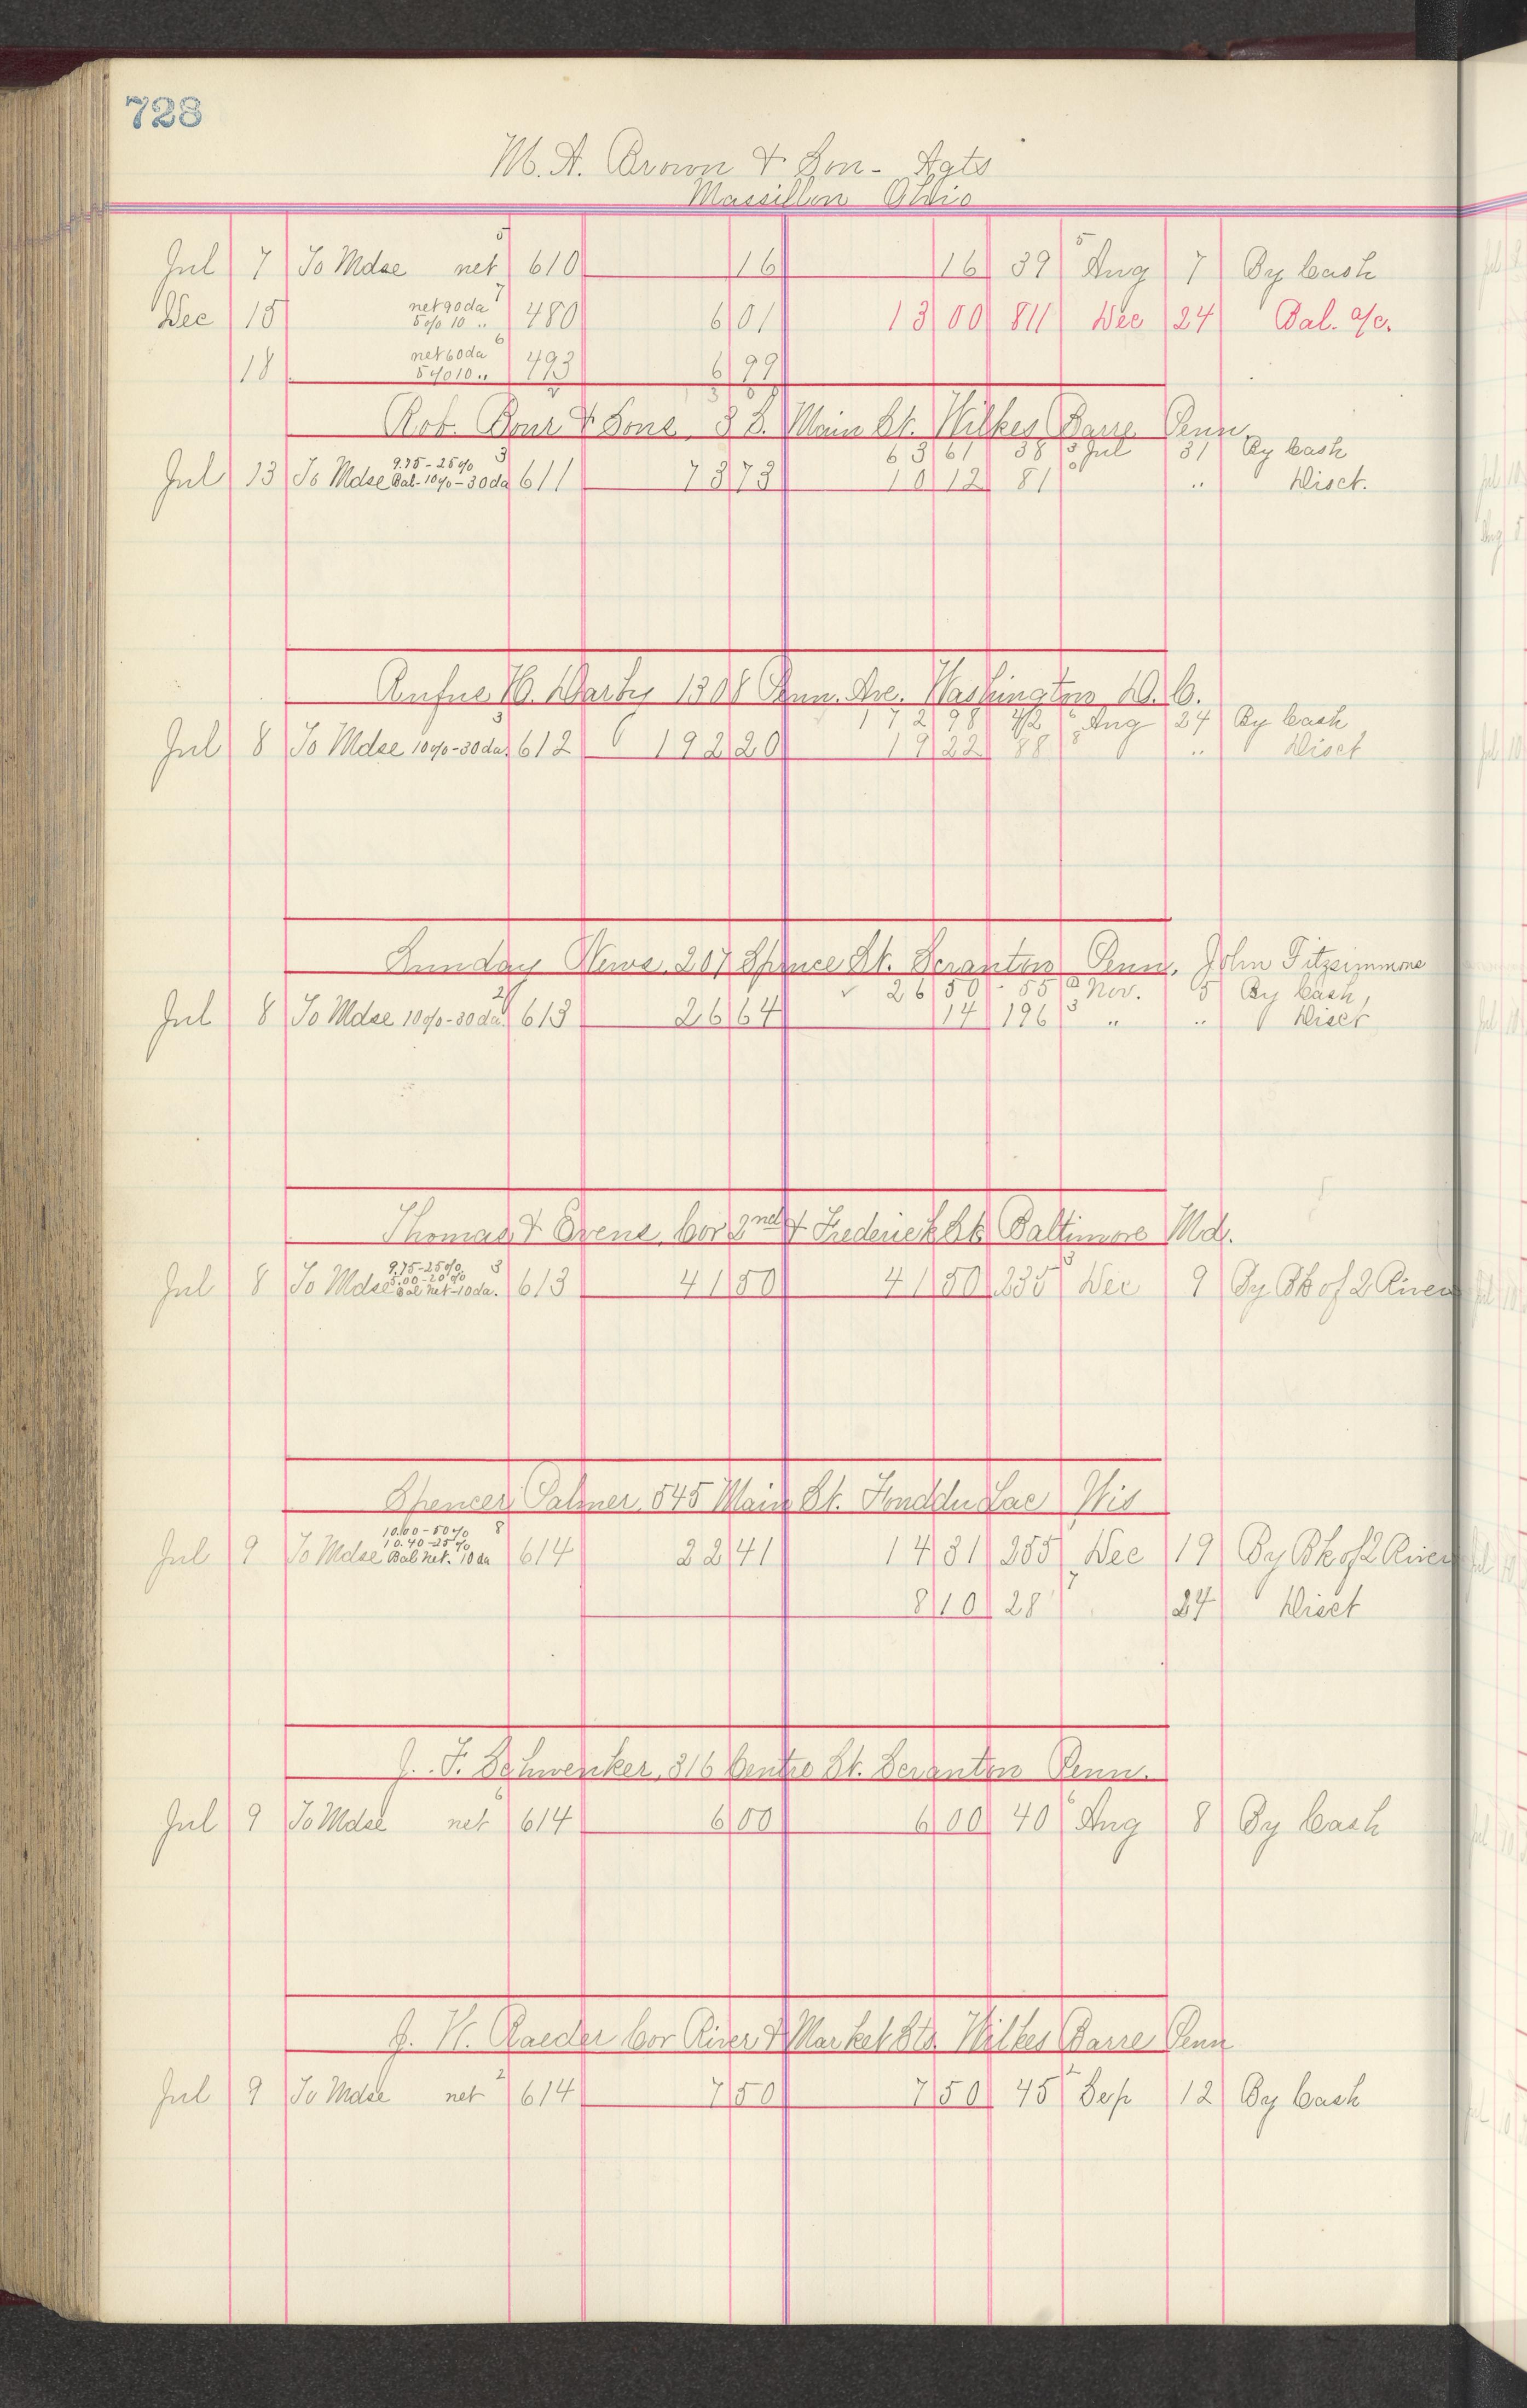 728
M. A. Brown & Son - Agts
Massillon Ohio
Jul 7 To Mdse net 5 610 16 16 39 5 Aug 7 By Cash
Dec 15 net 90 da 7 5% 10 " 480 6 01 13 00 811 Dec 24 Bal. a/c.
18 net 60 da 6 5% 10 " 493 6 99
13 00
Rob. Bour & Sons, 3 S. Main St. Wilkes Barre Penn
63 61 38 3 Jul 31 By Cash
Jul 13 To Mdse 9.75 - 25% Bal - 10% - 30 da 3 611 73 73 10 12 81 " Disct.
Rufus H. Darby 1308 Penn. Ave. Washington D. C.
172 98 42 6 Aug 24 By Cash
Jul 8 To Mdse 10% - 30 da. 3 612 192 20 19 22 88 8 " Disct
Sunday News, 207 Spruce St. Scranton Penn, John Fitzsimmons
26 50 - 55 Nov. 5 By Cash,
Jul 8 To Mdse 10% - 30 da. 2 613 26 64 14 196 3 " " Disct
Thomas & Evens, Cor 2nd & Frederick St. Baltimore Md.
Jul 8 To Mdse 9.75 - 25% 5.00 - 20% Bal net - 10 da. 3 613 41 50 41 50 235 3 Dec 9 By Bk of 2 Rivers
Spencer Palmer, 545 Main St. Fonddu Lac Wis
Jul 9 To Mdse 10.00 - 50% 10.40 - 25% Bal net. 10 da 8 614 22 41 14 31 255 Dec 19 By Bk of 2 River
8 10 28 7 24 Disct
J. F. Schwenker, 316 Centre St. Scranton Penn.
Jul 9 To Mdse net 6 614 6 00 6 00 40 6 Aug 8 By Cash
J. W. Raeder Cor River & Market Sts. Wilkes Barre Penn
Jul 9 To Mdse net 2 614 7 50 7 50 45 2 Sep 12 By Cash